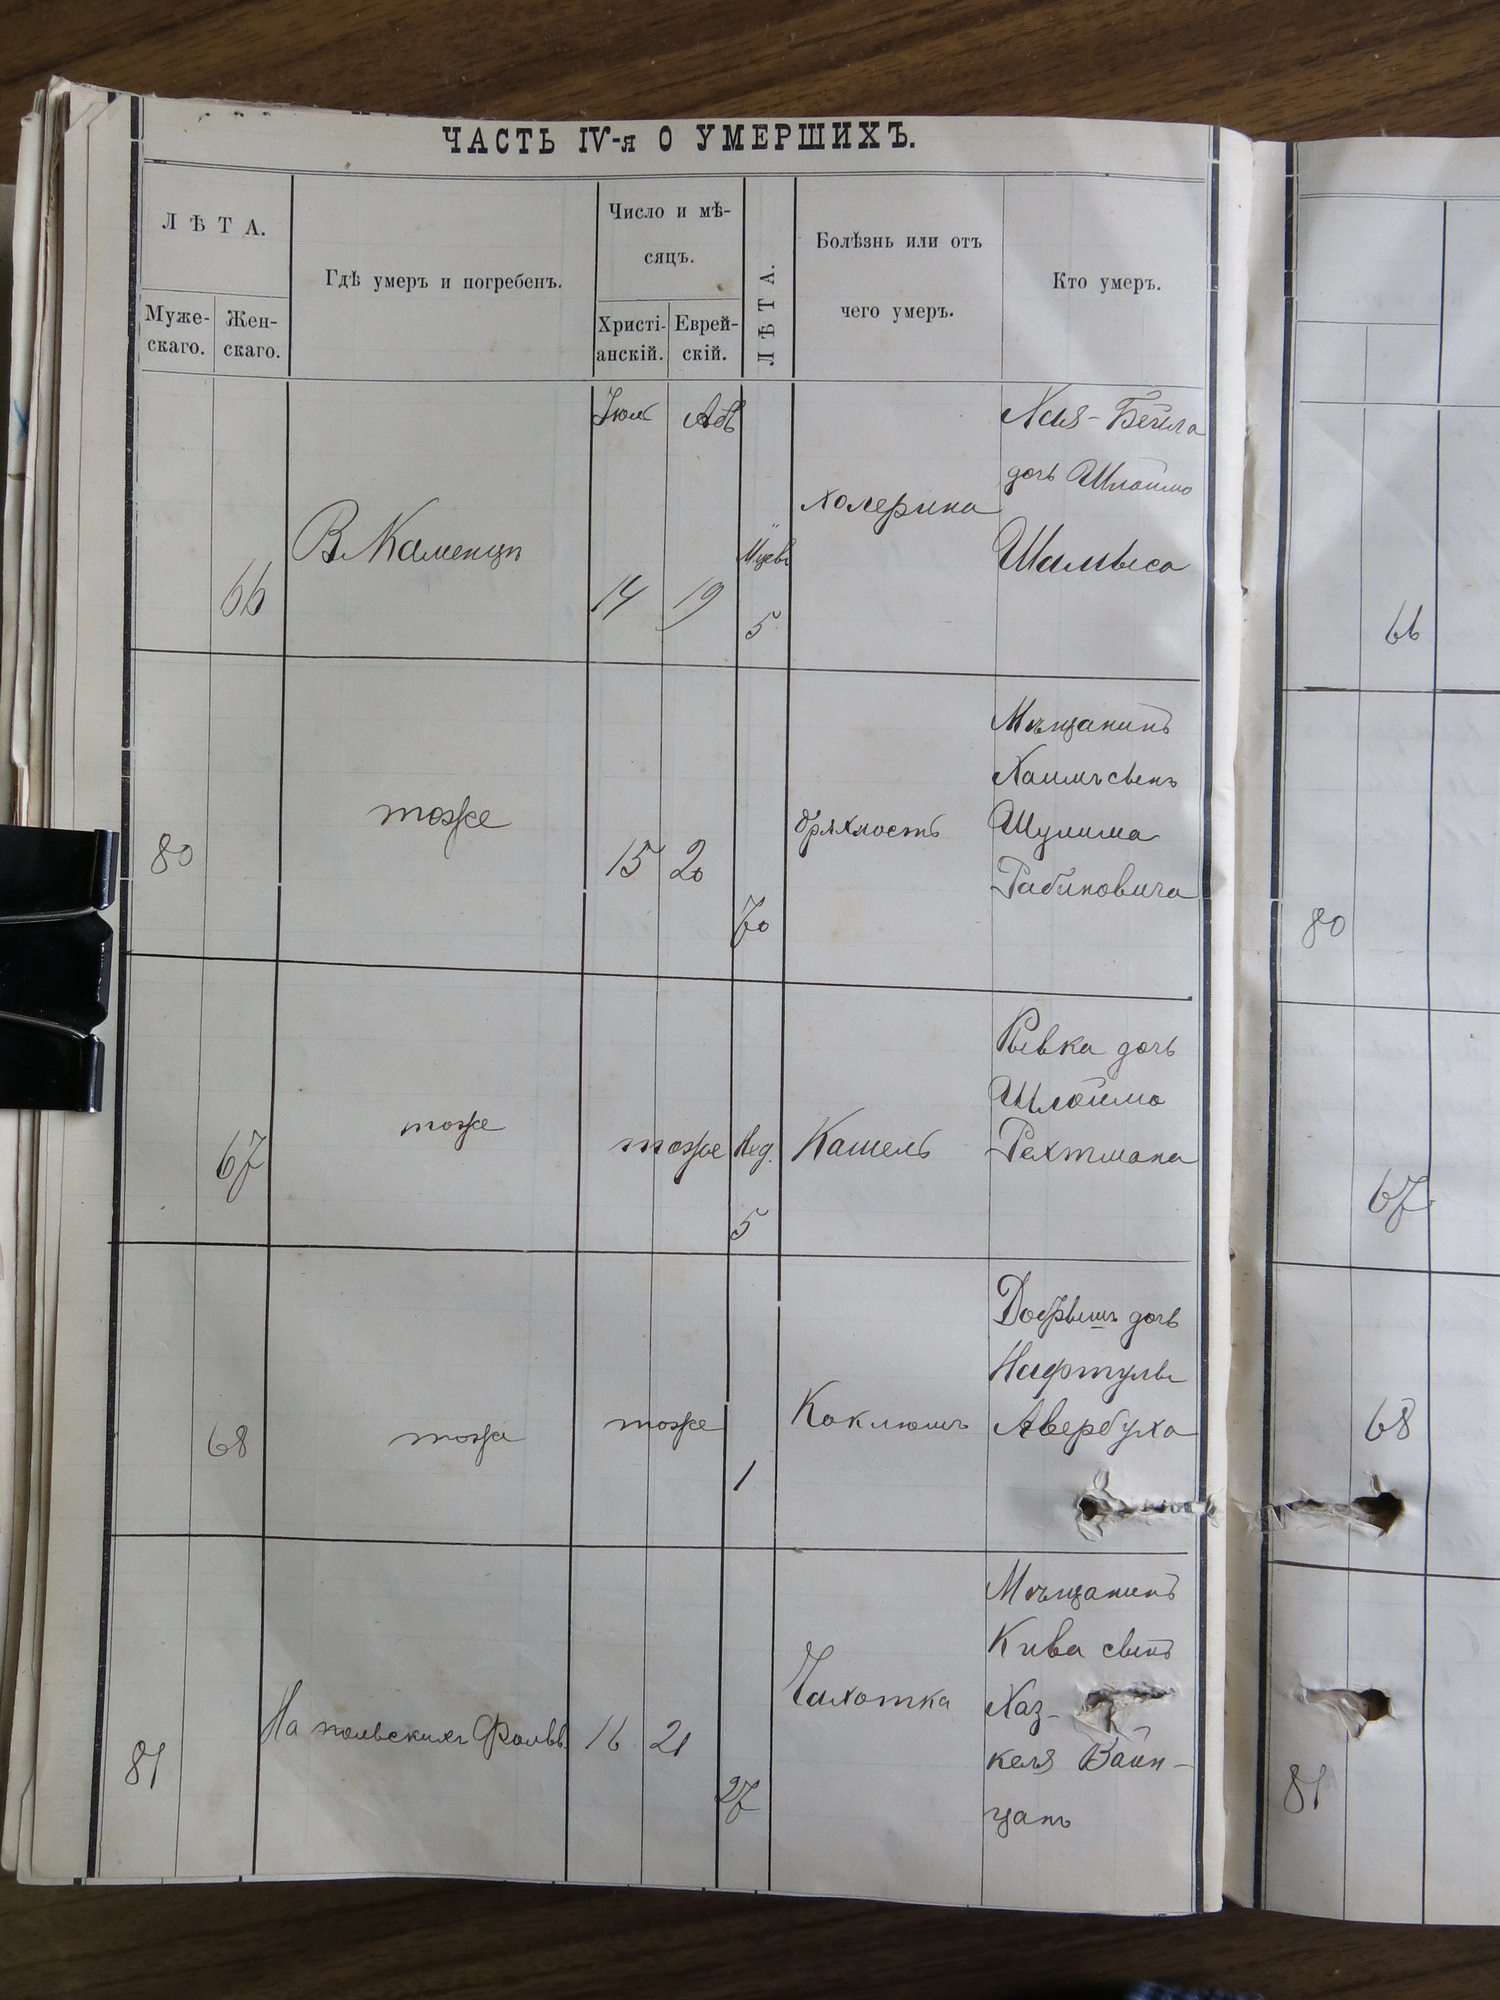 ЧАСТЬ IV-я О УМЕРШИХЪ.
ЛѢТА.
Муже-
скаго.
Жен-
скаго.
Гдѣ умеръ и погребенъ.
Число и мѣ-
сяцъ.
Христі-
анскій.
Еврей-
скій.
ЛѢТА.
Болѣзнь или отъ
чего умеръ.
Кто умеръ.
66
В Каменцѣ
Июля
14
Абъ
19
5
холерина
Хая-Бейла
дочь Шлоймо
66
80
тоже
15
20
70
дряхлость
Мѣщанинъ
Хаимъ сынъ
Шулима
Рабиновича
80
67
тоже
тоже
Нед.
5
Кашель
Рывка дочь
Шлоймо
Рехтмана
67
68
тоже
тоже
1
Коклюшъ
Добрышъ дочь
Нафтулы
Авербуха
68
81
На польскихъ Фольв.
16
21
27
Чахотка
Мѣщанинъ
Кива сынъ
Хаз-
келя Вайн-
цанъ
81